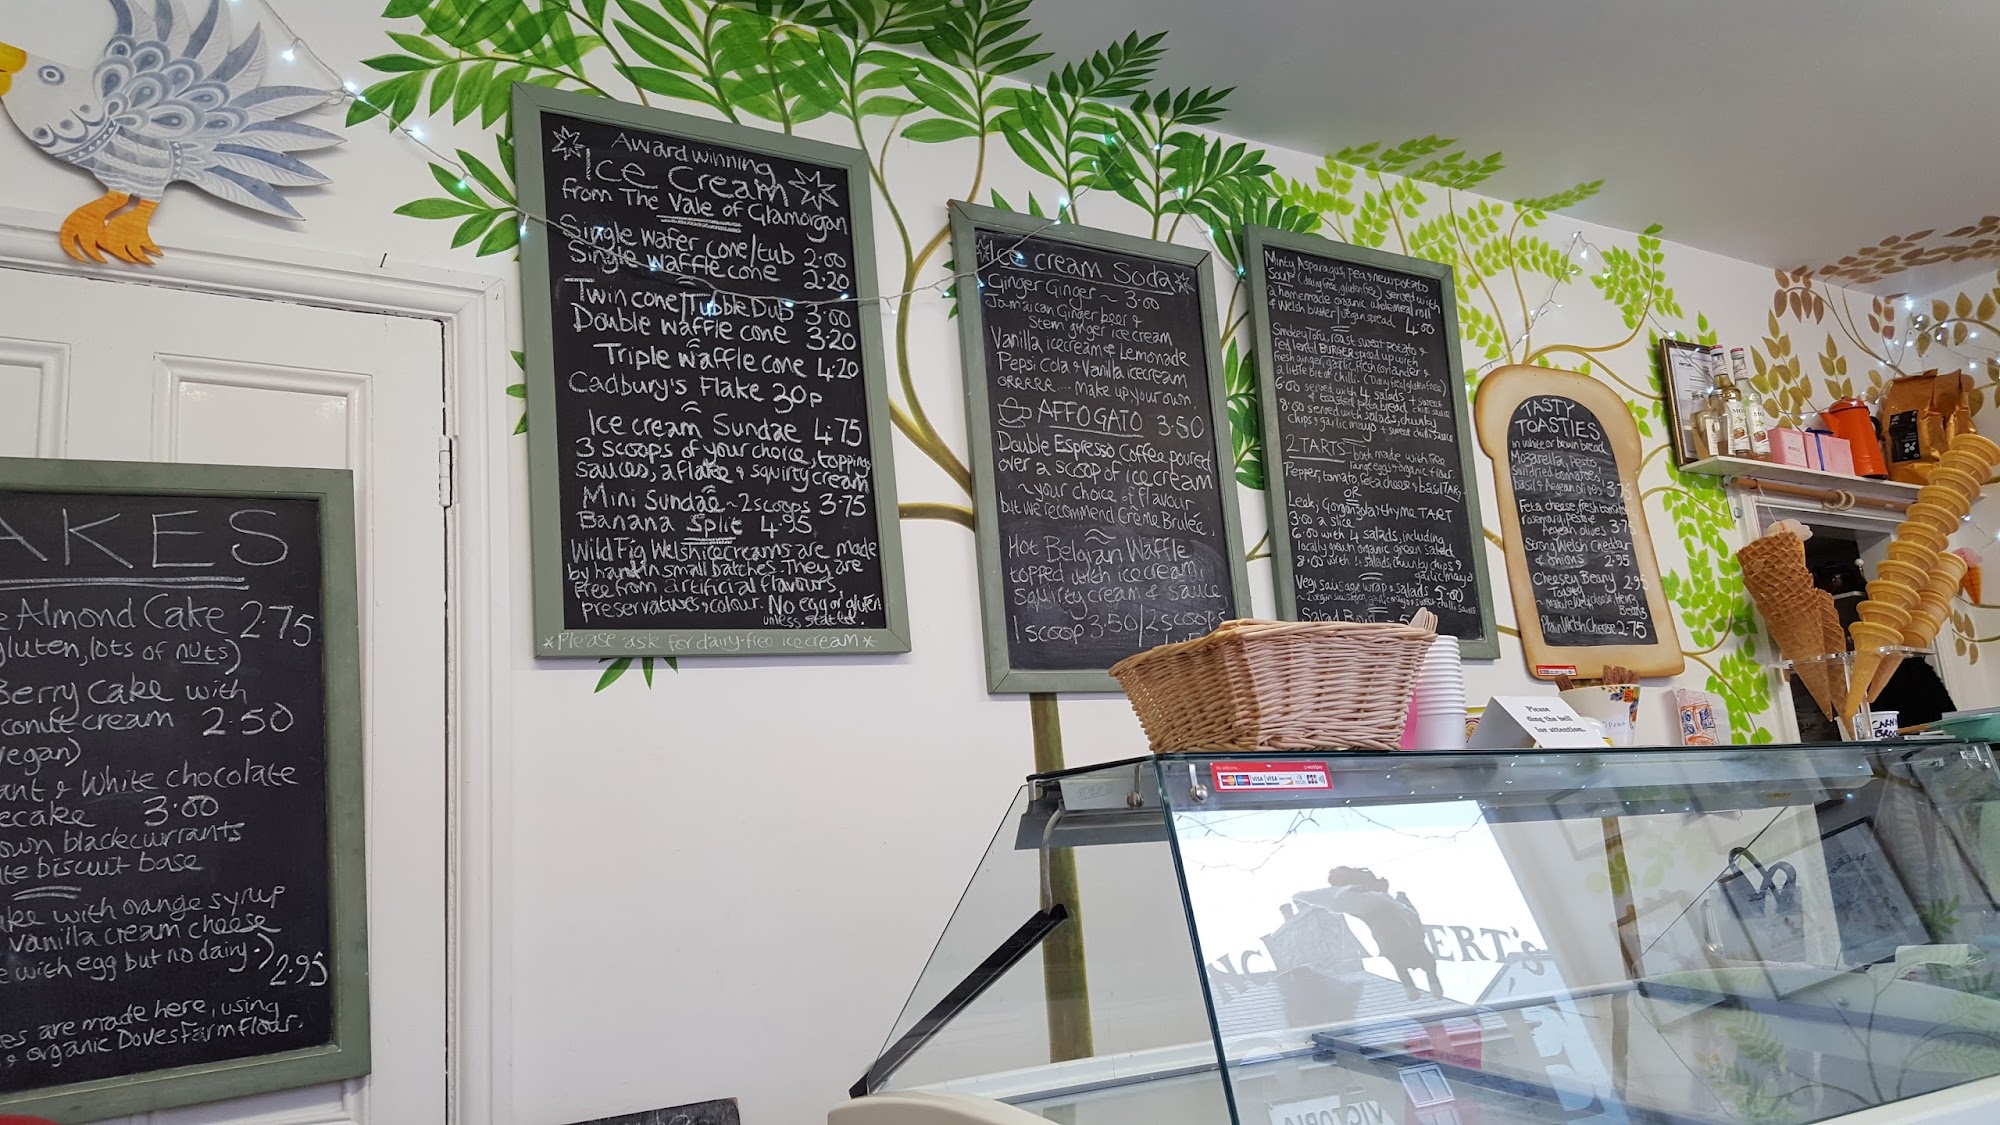 AKES
Almond Cake 2.75
gluten, lots of nuts)
Berry Cake with
conut cream 2.50
vegan)
ant & White chocolate
ecake 3.00
own blackcurrants
te biscuit base
ke with orange syrup
vanilla cream cheese
e with egg but no dairy.) 2.95
es are made here, using
& organic Doves Farm flour.
Award winning
Ice Cream
from The Vale of Glamorgan
Single wafer cone/tub 2.00
Single waffle cone 2.20
Twin cone/Tubble Dub 3.00
Double waffle cone 3.20
Triple waffle cone 4.20
Cadbury's Flake 30p
Ice cream Sundae 4.75
3 scoops of your choice, topping
sauces, a flake & squirty cream
Mini Sundae ~ 2 scoops 3.75
Banana Split 4.95
Wild Fig Welsh icecreams are made
by hand in small batches. They are
free from artificial flavours,
preservatives, & colour. No egg or gluten
unless stated.
*Please ask for dairy-free ice cream*
Ice cream Soda
Ginger Ginger ~ 3.00
Jamaican Ginger beer &
Stem ginger ice cream
Vanilla icecream & Lemonade
Pepsi Cola & Vanilla icecream
orrrrr.... make up your own.
AFFOGATO 3.50
Double Espresso Coffee poured
over a scoop of ice cream
~ your choice of flavour
but we recommend Crème Brulée,
Hot Belgian Waffle
topped with ice cream,
squirty cream & sauce
1 scoop 3.50/2 scoops
Minty Asparagus, pea & new potato
Soup (dairy free, gluten free) served with
a homemade organic wholemeal roll
& Welsh butter/vegan spread 4.00
Smokey Tofu, roast sweet potato &
red lentil BURGER spiced up with
fresh ginger, garlic, fresh coriander &
a little bit of chilli. (Dairy free/gluten free)
6.00 served with 4 salads +
& toasted pitta bread, chilli sauce
8.00 served with salads, chunky
chips & garlic mayo & sweet chilli sauce
2 TARTS - both made with free
range eggs & organic flour.
Pepper, tomato, feta cheese & basil TART,
OR
Leek, Gorgonzola & thyme TART
3.00 a slice
6.00 with 4 salads, including
locally grown organic green salad
8.00 with 4 salads, chunky chips &
garlic mayo
Vegi sausage wrap & salads 5.00
Salad Bowl
TASTY
TOASTIES
in white or brown bread
Mozzarella, pesto,
sundried tomatoes,
basil & Aegean olives 3.75
Feta cheese, fresh tomato,
rosemary, pesto &
Aegean olives 3.75
Strong Welsh Cheddar
& onions 2.95
Cheesey Beany 2.95
Toasty
Plain Welsh Cheese 2.75
Please
ding the bell
for attention.
VISA VISA
worldpay
ERT's
VICTORIA